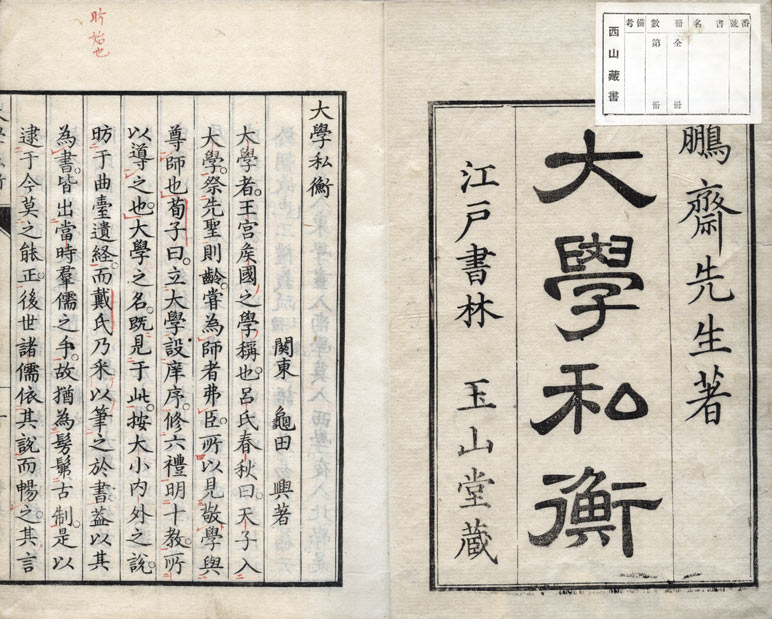 番號
書名
冊數
備考
全 冊
第 冊
西山藏書
鵬齋先生著
大學私衡
江戸書林 玉山堂蔵
大學私衡
関東 龜田興著
大學者。王宮矦國之學稱也。呂氏春秋曰。天子入
大學。祭先聖則齡。嘗為師者弗臣。所以見敬學與
尊師也。荀子曰。立大學設庠序。修六禮明十教。所
以導之也。大學之名。既見于此。按大小内外之說。
昉于曲臺遺経。而戴氏乃釆以筆之於書。葢以其
為書。皆出當時羣儒之手。故猶為髣髴古制。是以
逮于今莫之能正。後世諸儒依其說而暢之。其言
昉始也